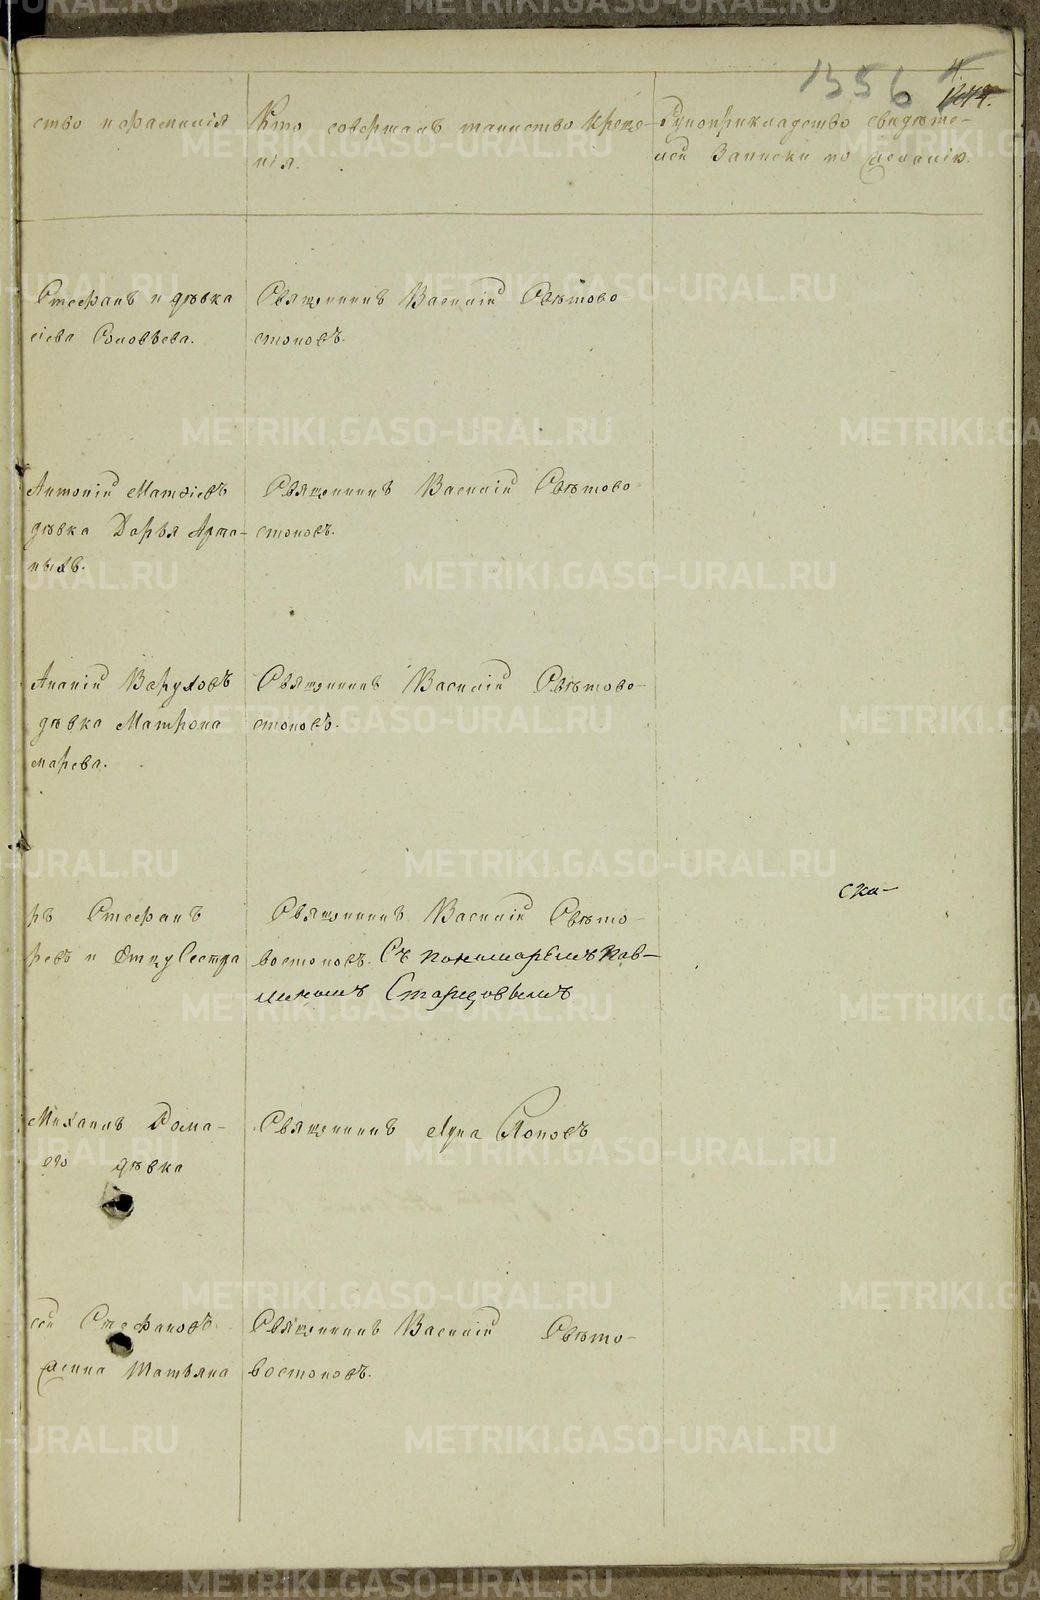 1356 4
ство и фамилія
Кто совершалъ таинство креще-
нія.
Рукоприкладство свидѣте-
лей Записки по желанію.
Стефанъ и дѣвка
сіева Соловьева.
Священникъ Василій Свѣтово
стоковъ.
Антоній Матѳіевъ
дѣвка Дарья Арта-
ныхъ.
Священникъ Василій Свѣтово
стоковъ.
Ананій Варуховъ
дѣвка Матрона
марева.
Священникъ Василій Свѣтово-
стоковъ.
ръ Стефанъ
ревъ и Отцу Сестра
Священникъ Василій Свѣто-
востоковъ. Съ пономаремъ Пав-
линомъ Старцовымъ
ска-
Михаилъ Рома-
его дѣвка
Священникъ Лука Поповъ
сей Стефановъ
жена Татьяна
Священникъ Василій Свѣто-
востоковъ.
METRIKI.GASO-URAL.RU